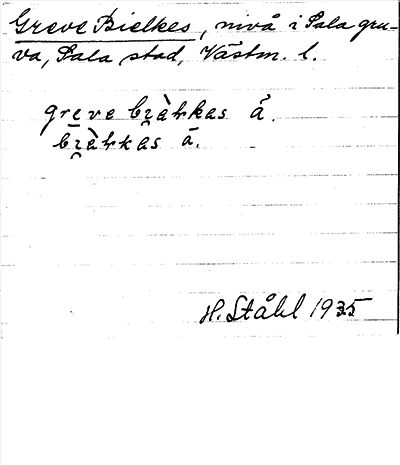 Greve Bielkes, nivå i Sala gru-
va, Sala stad, Västm. l.
greve bi̯ὰƚkas å.
bi̯ὰƚkas å.
H. Ståhl 1935